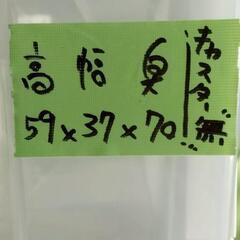 高 幅 奥
59×37×70
キャスター無